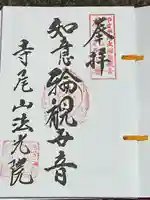 奉拝
知意輪観世音
寺尾山法光院